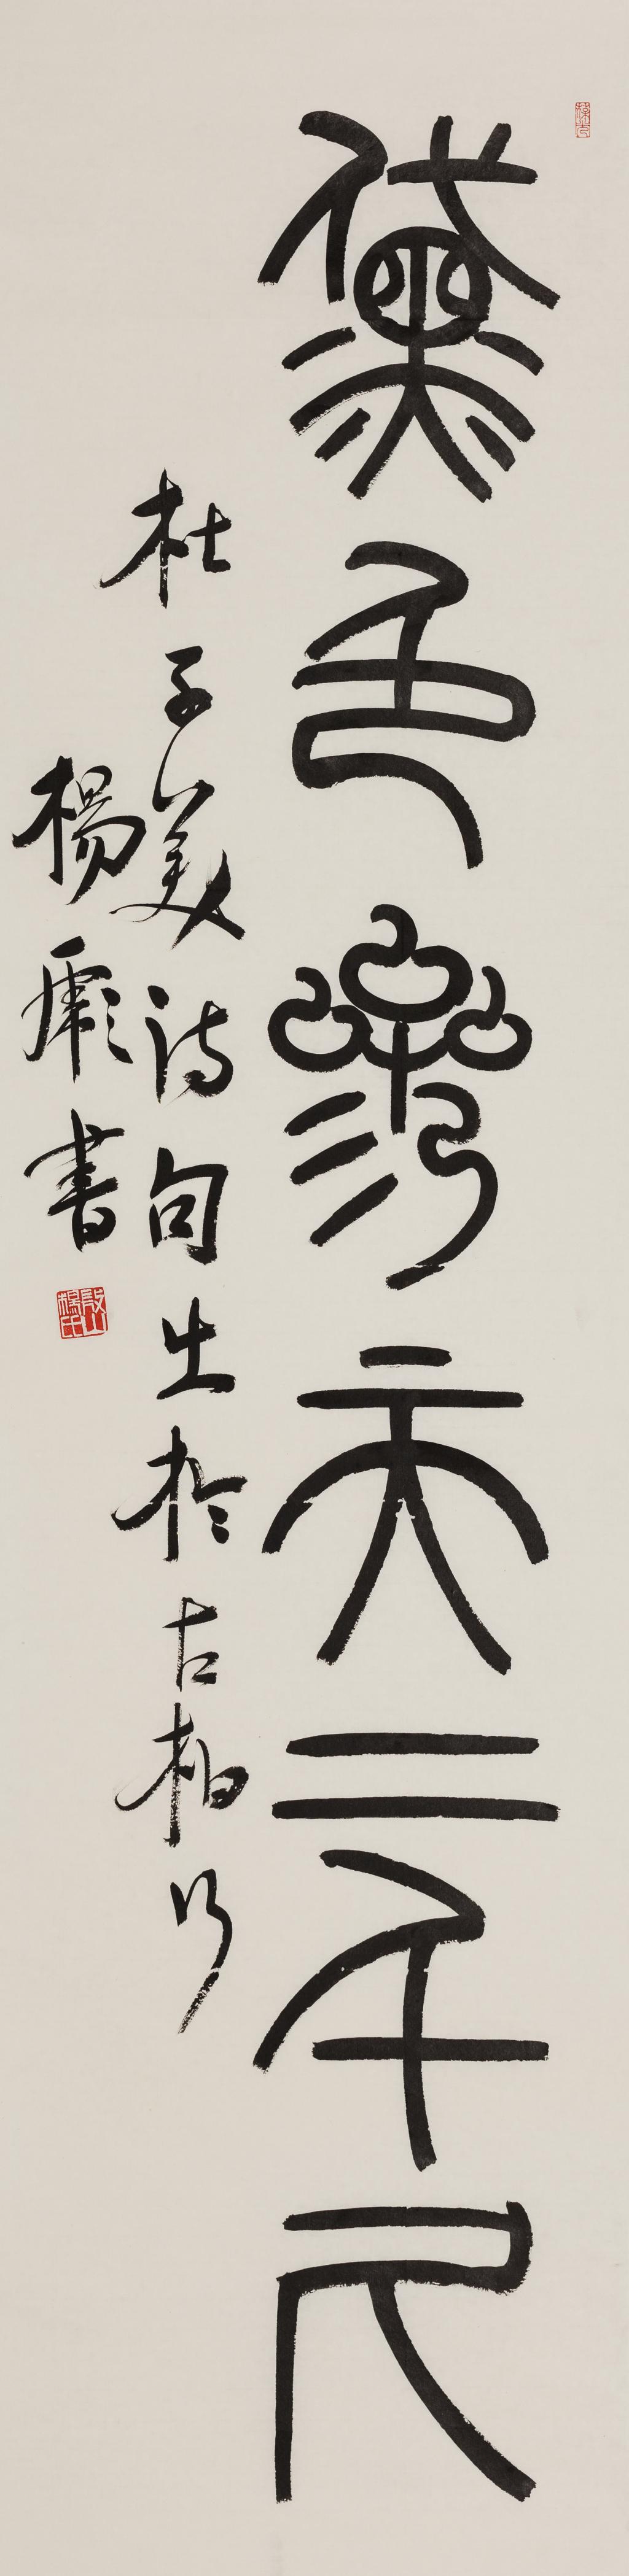 黛色參天二千尺
杜子美詩句出於古柏行
楊彪書